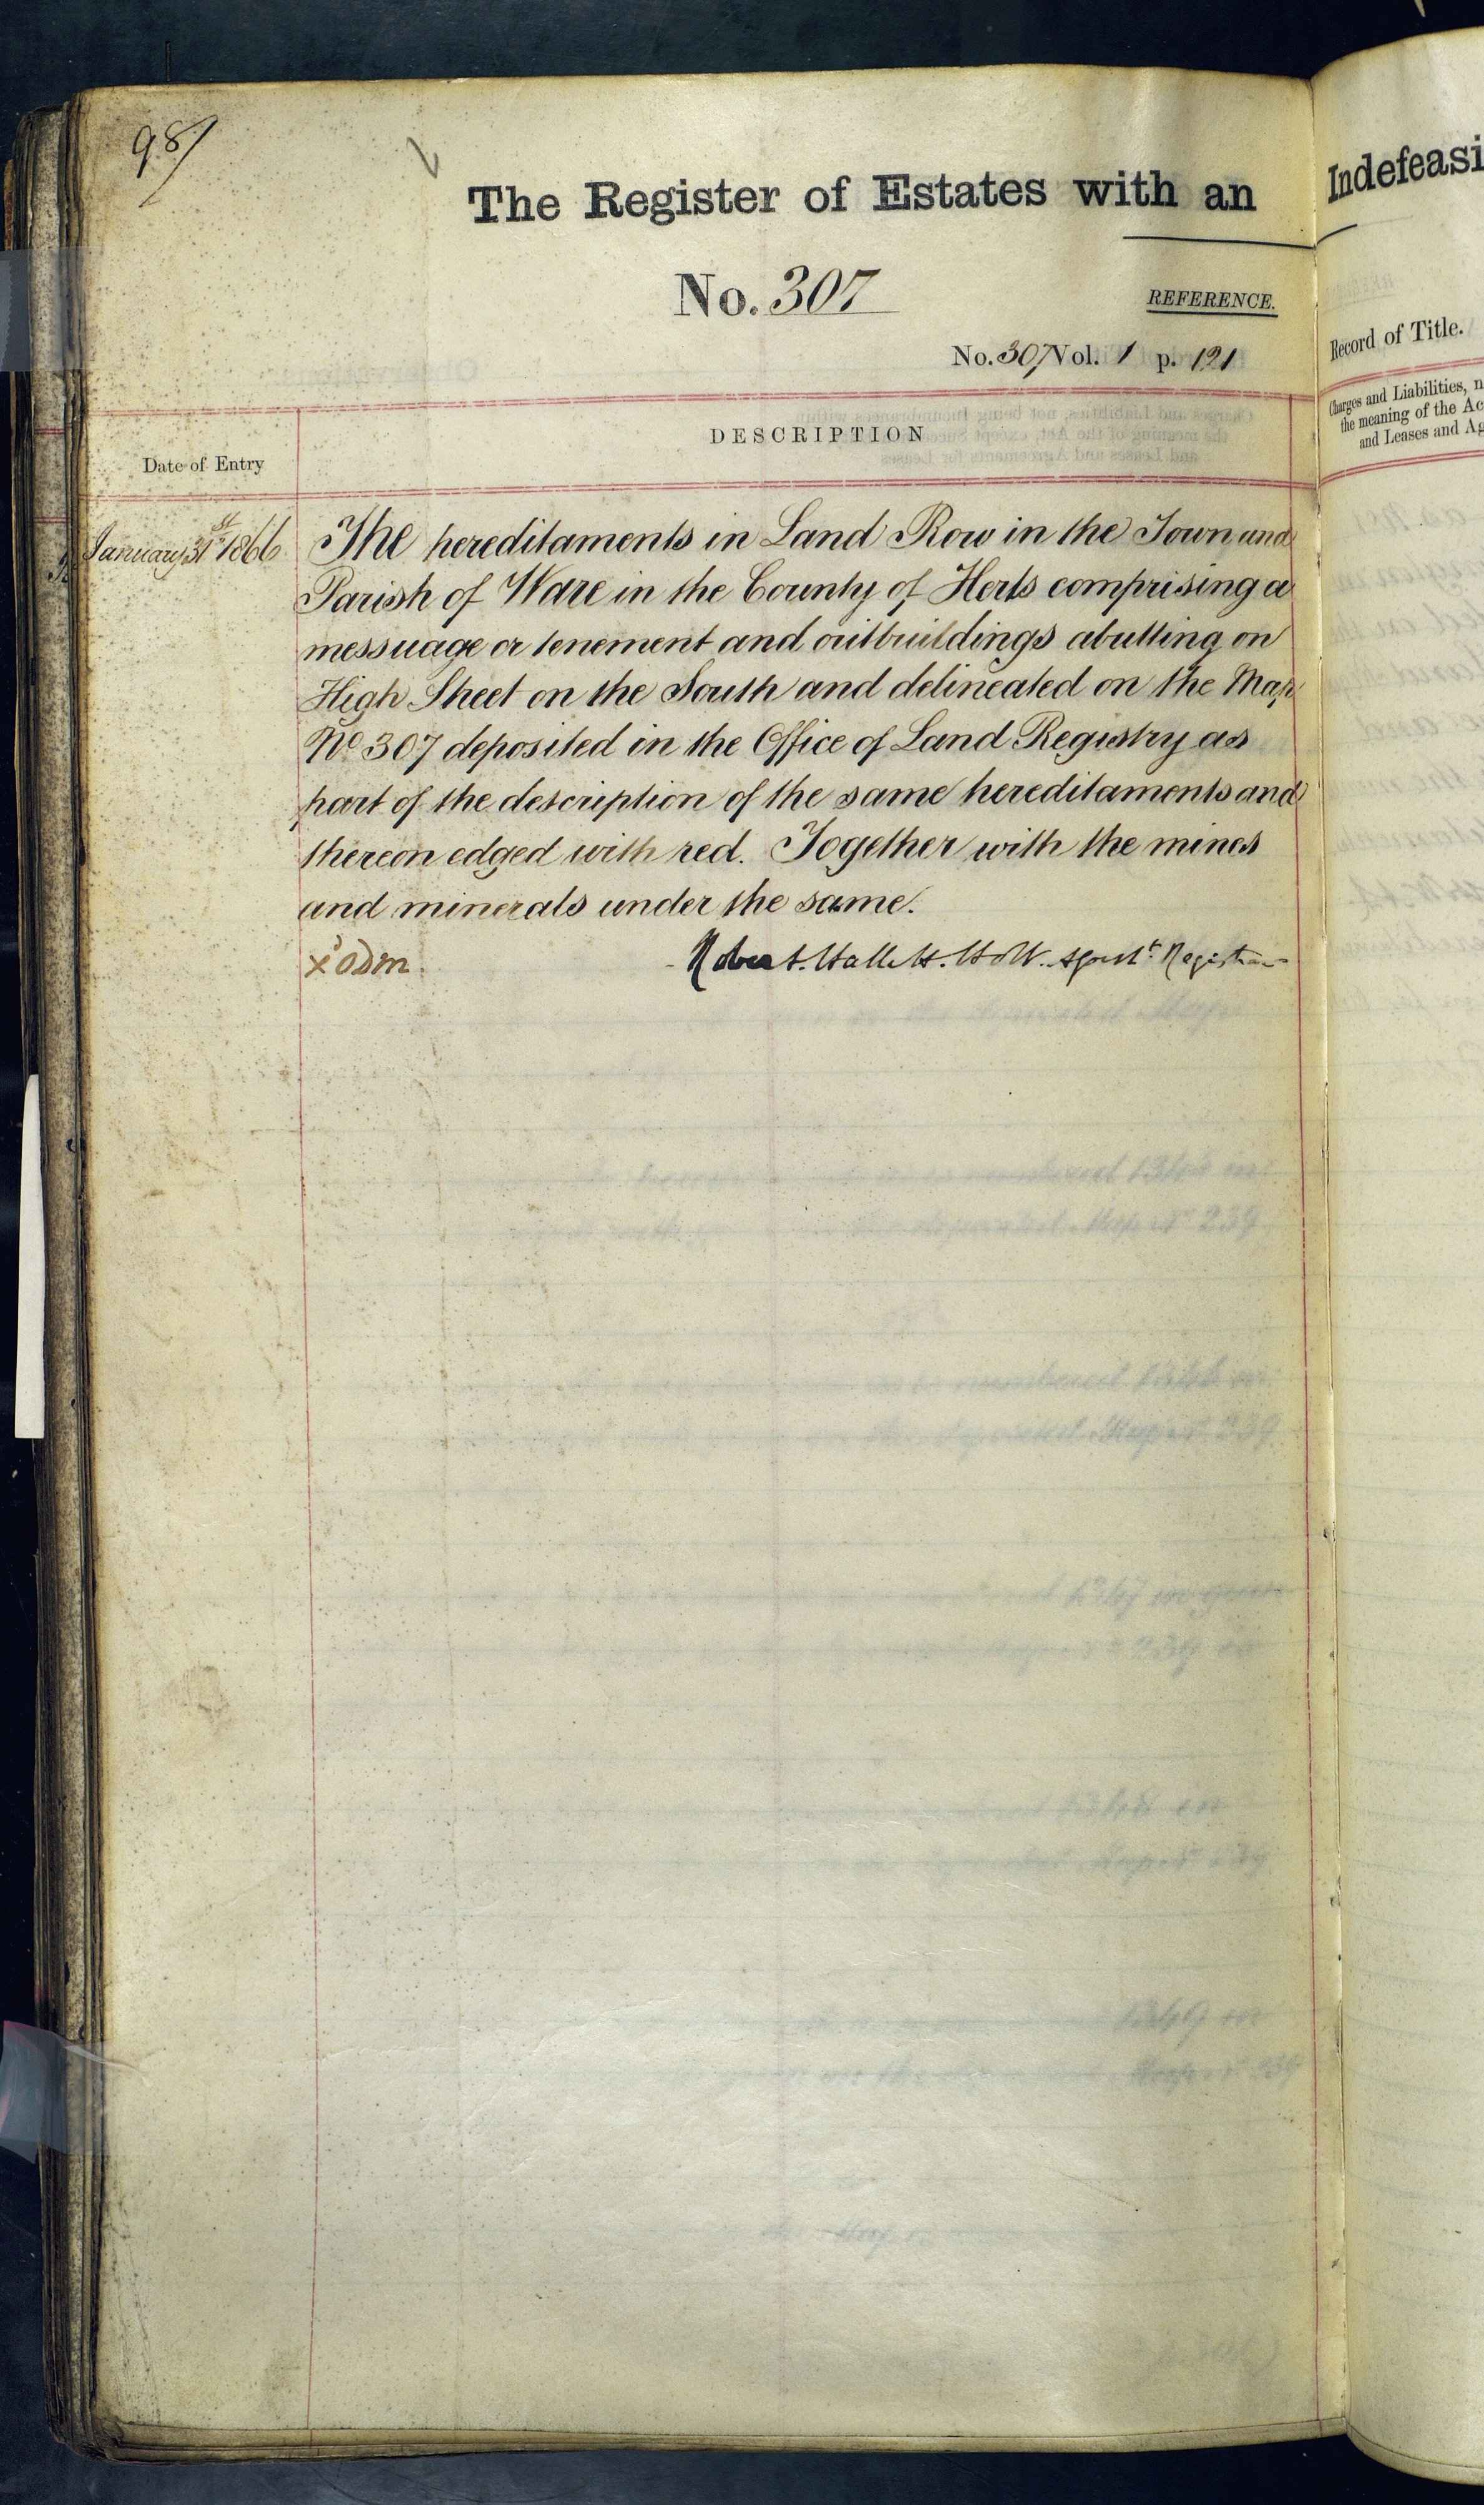 98/
The Register of Estates with an
No. 307
REFERENCE.
No. 307 Vol. 1 p. 121
DESCRIPTION
Date of Entry
January 31st 1866
The hereditaments in Land Row in the Town and
Parish of Ware in the County of Herts comprising a
messuage or tenement and outbuildings abutting on
High Street on the South and delineated on the Map
No 307 deposited in the Office of Land Registry as
part of the description of the same hereditaments and
thereon edged with red. Together with the mines
and minerals under the same.
Robert Hallett Holt Assist Registrar
Indefeasi
Record of Title.
Charges and Liabilities, n
the meaning of the Ac
and Leases and Ag